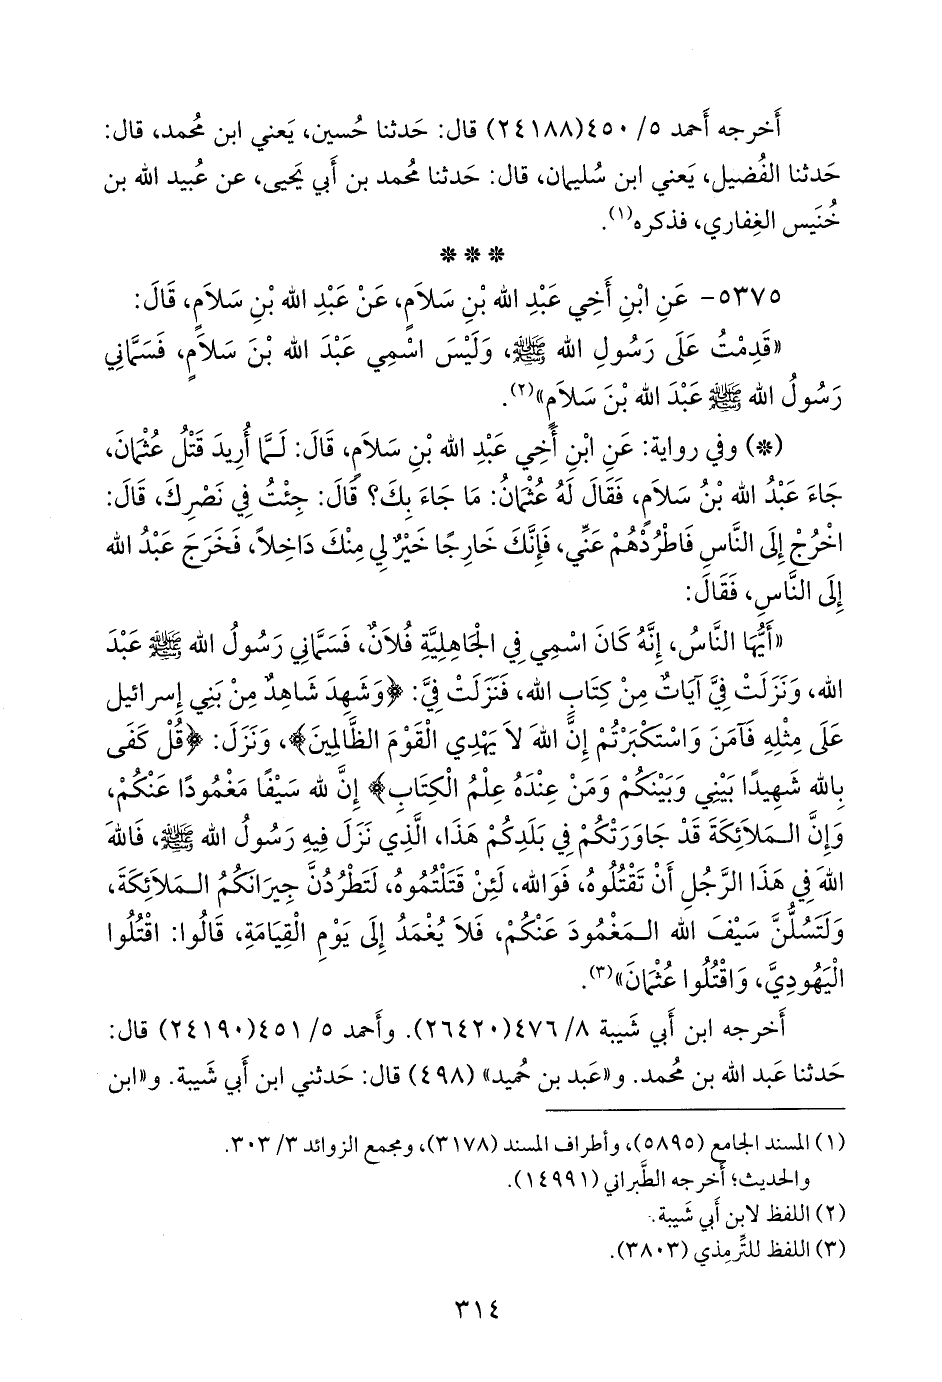 أَخرجه أَحمد ٥/ ٤٥٠(٢٤١٨٨) قال: حَدثنا حُسين، يَعني ابن مُحمد، قال:
حَدثنا الفُضيل، يَعني ابن سُليمان، قال: حَدثنا مُحمد بن أَبي يَحيى، عن عُبيد الله بن
خُنَيس الغِفاري، فذكره(١).
***
٥٣٧٥- عَنِ ابْنِ أَخِي عَبْدِ الله بْنِ سَلاَمٍ، عَنْ عَبْدِ الله بْنِ سَلاَمٍ، قَالَ:
«قَدِمْتُ عَلَى رَسُولِ الله ﷺ، وَلَيْسَ اسْمِي عَبْدَ الله بْنَ سَلاَمٍ، فَسَمَّانِي
رَسُولُ الله ﷺ عَبْدَ الله بْنَ سَلاَمٍ»(٢).
(*) وفي رواية: عَنِ ابْنِ أَخِي عَبْدِ الله بْنِ سَلاَمٍ، قَالَ: لَمَّا أُرِيدَ قَتْلُ عُثْمَانَ،
جَاءَ عَبْدُ الله بْنُ سَلاَمٍ، فَقَالَ لَهُ عُثْمَانُ: مَا جَاءَ بِكَ؟ قَالَ: جِئْتُ فِي نَصْرِكَ، قَالَ:
اخْرُجْ إِلَى النَّاسِ فَاطْرُدْهُمْ عَنِّي، فَإِنَّكَ خَارِجًا خَيْرٌ لِي مِنْكَ دَاخِلاً، فَخَرَجَ عَبْدُ الله
إِلَى النَّاسِ، فَقَالَ:
«أَيُّهَا النَّاسُ، إِنَّهُ كَانَ اسْمِي فِي الْجَاهِلِيَّةِ فُلاَنٌ، فَسَمَّانِي رَسُولُ الله ﷺ عَبْدَ
الله، وَنَزَلَتْ فِيَّ آيَاتٌ مِنْ كِتَابِ الله، فَنَزَلَتْ فِيَّ: ﴿وَشَهِدَ شَاهِدٌ مِنْ بَنِي إِسرائيل
عَلَى مِثْلِهِ فَآمَنَ وَاسْتَكْبَرْتُمْ إِنَّ اللهَ لاَ يَهْدِي الْقَوْمَ الظَّالِمِينَ﴾، وَنَزَلَ: ﴿قُلْ كَفَى
بِالله شَهِيدًا بَيْنِي وَبَيْنَكُمْ وَمَنْ عِنْدَهُ عِلْمُ الْكِتَابِ﴾ إِنَّ لله سَيْفًا مَغْمُودًا عَنْكُمْ،
وَإِنَّ الـمَلاَئِكَةَ قَدْ جَاوَرَتْكُمْ فِي بَلَدِكُمْ هَذَا، الَّذِي نَزَلَ فِيهِ رَسُولُ الله ﷺ، فَاللهَ
اللهَ فِي هَذَا الرَّجُلِ أَنْ تَقْتُلُوهُ، فَوَالله، لَئِنْ قَتَلْتُمُوهُ، لَتَطْرُدُنَّ جِيرَانَكُمُ الـمَلاَئِكَةَ،
وَلَتَسُلُّنَّ سَيْفَ الله الـمَغْمُودَ عَنْكُمْ، فَلاَ يُغْمَدُ إِلَى يَوْمِ الْقِيَامَةِ، قَالُوا: اقْتُلُوا
الْيَهُودِيَّ، وَاقْتُلُوا عُثْمَانَ»(٣).
أَخرجه ابن أَبي شَيبة ٨/ ٤٧٦(٢٦٤٢٠). وأَحمد ٥/ ٤٥١(٢٤١٩٠) قال:
حَدثنا عَبد الله بن مُحمد. و«عَبد بن حُميد» (٤٩٨) قال: حَدثني ابن أَبي شَيبة. و«ابن
(١) المسند الجامع (٥٨٩٥)، وأَطراف المسند (٣١٧٨)، ومجمع الزوائد ٣/ ٣٠٣.
والحديث؛ أَخرجه الطَّبراني (١٤٩٩١).
(٢) اللفظ لابن أَبي شَيبة.
(٣) اللفظ للتِّرمِذي (٣٨٠٣).
٣١٤